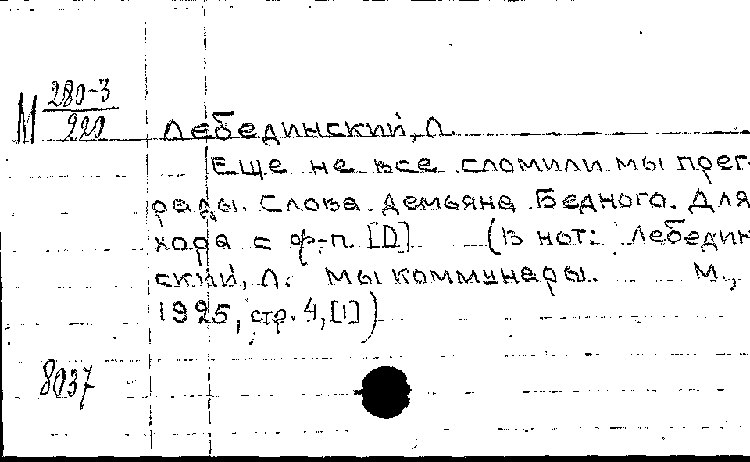 М 280-3
220
Лебединский, Л.
Еще не все сломили мы прег-
рады. Слова Демьяна Бедного. Для
хора с ф-п. [D] (В нот: Лебедин
ский, Л. Мы коммунары. М.,
1925, стр. 4, [1])
8037